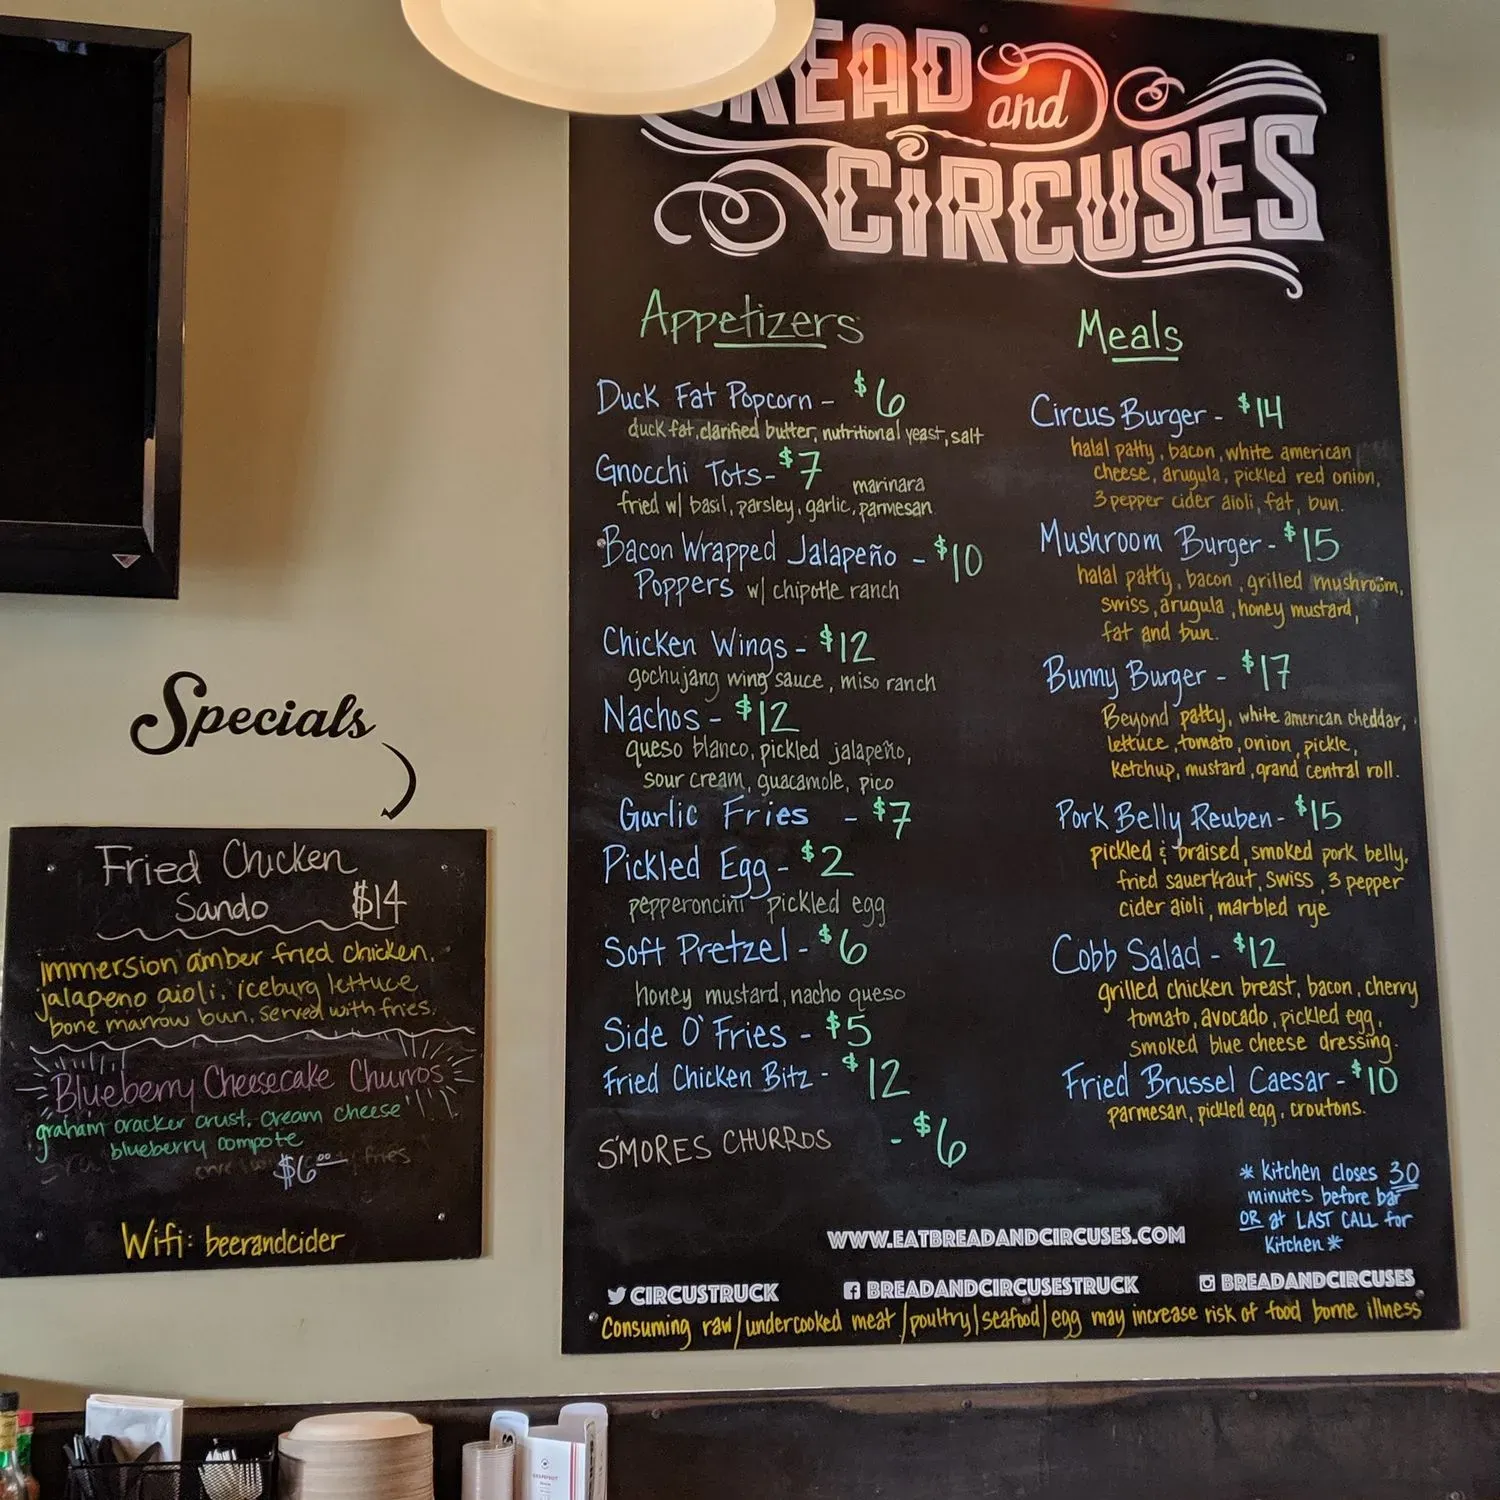 BREAD and
CIRCUSES
Appetizers
Duck Fat Popcorn - $6
duck fat, clarified butter, nutritional yeast, salt
Gnocchi Tots - $7 marinara
fried w/ basil, parsley, garlic, parmesan
Bacon Wrapped Jalapeño - $10
Poppers w/ chipotle ranch
Chicken Wings - $12
gochujang wing sauce, miso ranch
Nachos - $12
queso blanco, pickled jalapeño,
sour cream, guacamole, pico
Garlic Fries - $7
Pickled Egg - $2
pepperoncini pickled egg
Soft Pretzel - $6
honey mustard, nacho queso
Side O' Fries - $5
Fried Chicken Bitz - $12
S'MORES CHURROS - $6
Meals
Circus Burger - $14
halal patty, bacon, white american
cheese, arugula, pickled red onion,
3 pepper cider aioli, fat, bun.
Mushroom Burger - $15
halal patty, bacon, grilled mushroom,
swiss, arugula, honey mustard,
fat and bun.
Bunny Burger - $17
Beyond patty, white american cheddar,
lettuce, tomato, onion, pickle,
ketchup, mustard, grand central roll.
Pork Belly Reuben - $15
pickled & braised, smoked pork belly.
fried sauerkraut, swiss, 3 pepper
cider aioli, marbled rye
Cobb Salad - $12
grilled chicken breast, bacon, cherry
tomato, avocado, pickled egg,
smoked blue cheese dressing.
Fried Brussel Caesar - $10
parmesan, pickled egg, croutons.
* Kitchen closes 30
minutes before bar
OR at LAST CALL for
Kitchen *
WWW.EATBREADANDCIRCUSES.COM
CIRCUSTRUCK BREADANDCIRCUSESTRUCK BREADANDCIRCUSES
Consuming raw/undercooked meat/poultry/seafood/egg may increase risk of food borne illness
Specials
Fried Chicken
Sando $14
immersion amber fried chicken,
jalapeno aioli, iceburg lettuce
bone marrow bun, served with fries.
Blueberry Cheesecake Churros
graham cracker crust, cream cheese
blueberry compote
$6.00 fries
Wifi: beerandcider